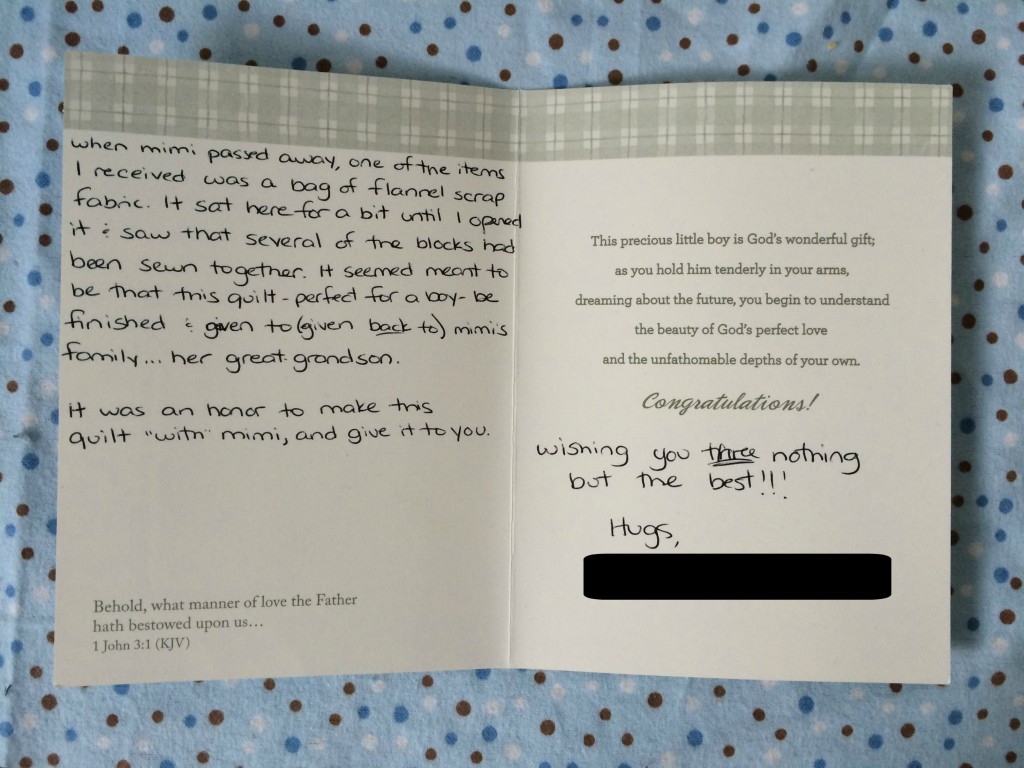 when mimi passed away, one of the items
I received was a bag of flannel scrap
fabric. It sat here for a bit until I opened
it & saw that several of the blocks had
been sewn together. It seemed meant to
be that this quilt - perfect for a boy - be
finished & given to (given back to) mimi's
family... her great grandson.
it was an honor to make this
quilt "with" mimi, and give it to you.
Behold, what manner of love the Father
hath bestowed upon us...
1 John 3:1 (KJV)
This precious little boy is God's wonderful gift;
as you hold him tenderly in your arms,
dreaming about the future, you begin to understand
the beauty of God's perfect love
and the unfathomable depths of your own.
Congratulations!
wishing you three nothing
but the best!!!
Hugs,